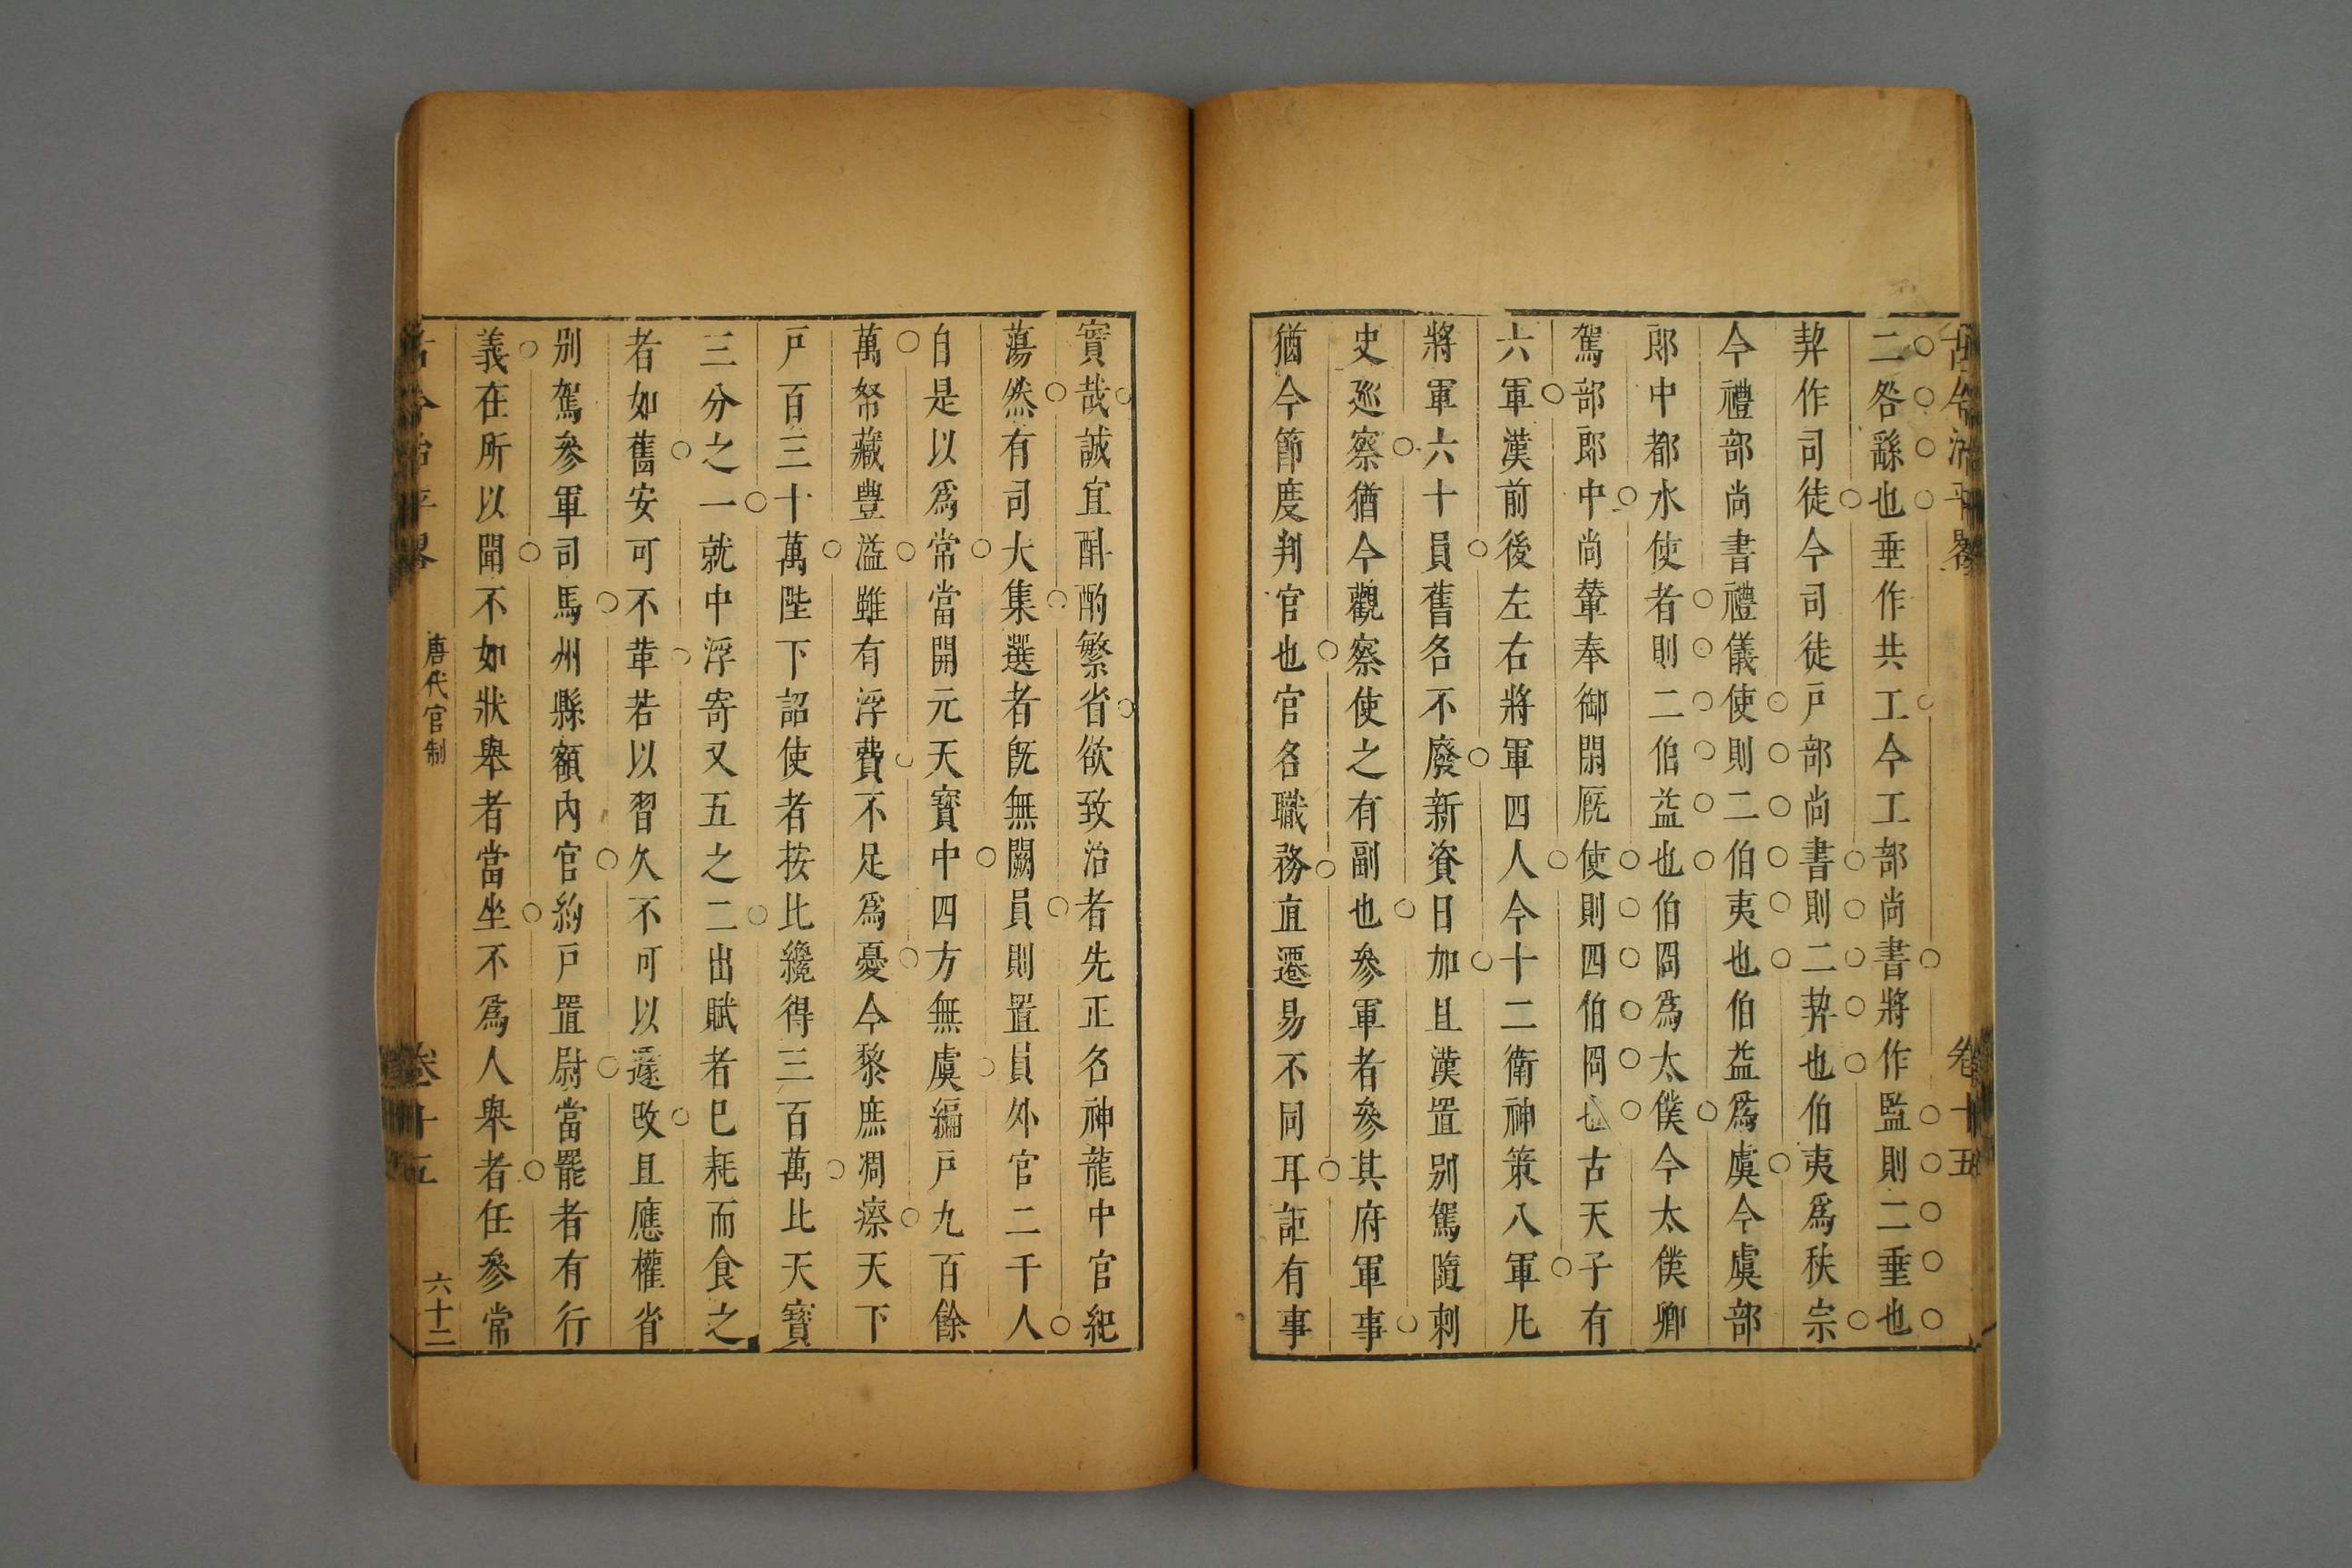 古今治平畧 卷十五
二咎繇也垂作共工今工部尚書將作監則二垂也
契作司徒今司徒戸部尚書則二契也伯夷爲秩宗
今禮部尚書禮儀使則二伯夷也伯益爲虞今虞部
郎中都水使者則二伯益也伯冏爲太僕今太僕卿
駕部郎中尚輦奉御閑厩使則四伯冏也古天子有
六軍漢前後左右將軍四人今十二衛神策八軍凡
將軍六十員舊各不廢新資日加且漢置别駕隨刺
史廵察猶今觀察使之有副也參軍者參其府軍事
猶今節度判官也官名職務直遷易不同耳詎有事
實哉誠宜斟酌繁省欲致治者先正名神龍中官紀
蕩然有司大集選者旣無闕員則置員外官二千人
自是以爲常當開元天寳中四方無虞編戸九百餘
萬帑藏豊溢雖有浮費不足爲憂今黎庶凋瘵天下
戸百三十萬陛下詔使者按比纔得三百萬比天寳
三分之一就中浮寄又五之二出賦者巳耗而食之
者如舊安可不革若以習久不可以遽改且應權省
别駕參軍司馬州縣額内官約戸置尉當罷者有行
義在所以聞不如狀舉者當坐不爲人舉者任參常
古今治平畧 唐代官制 卷十五 六十二